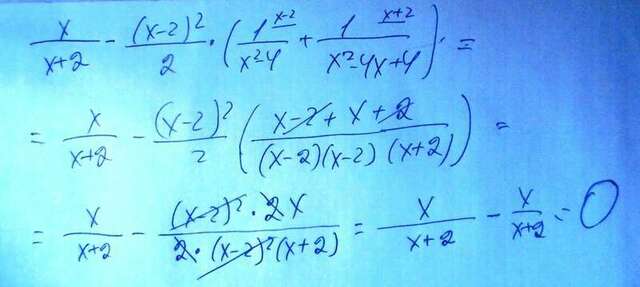 x/(x+2) - (x-2)²/2 · (1^(x-2)/(x²-4) + 1^(x+2)/(x²-4x+4)) · =
= x/(x+2) - (x-2)²/2 ((x-2+x+2)/((x-2)(x-2)(x+2))) =
= x/(x+2) - ((x-2)²·2x)/(2·(x-2)²(x+2)) = x/(x+2) - x/(x+2) = 0